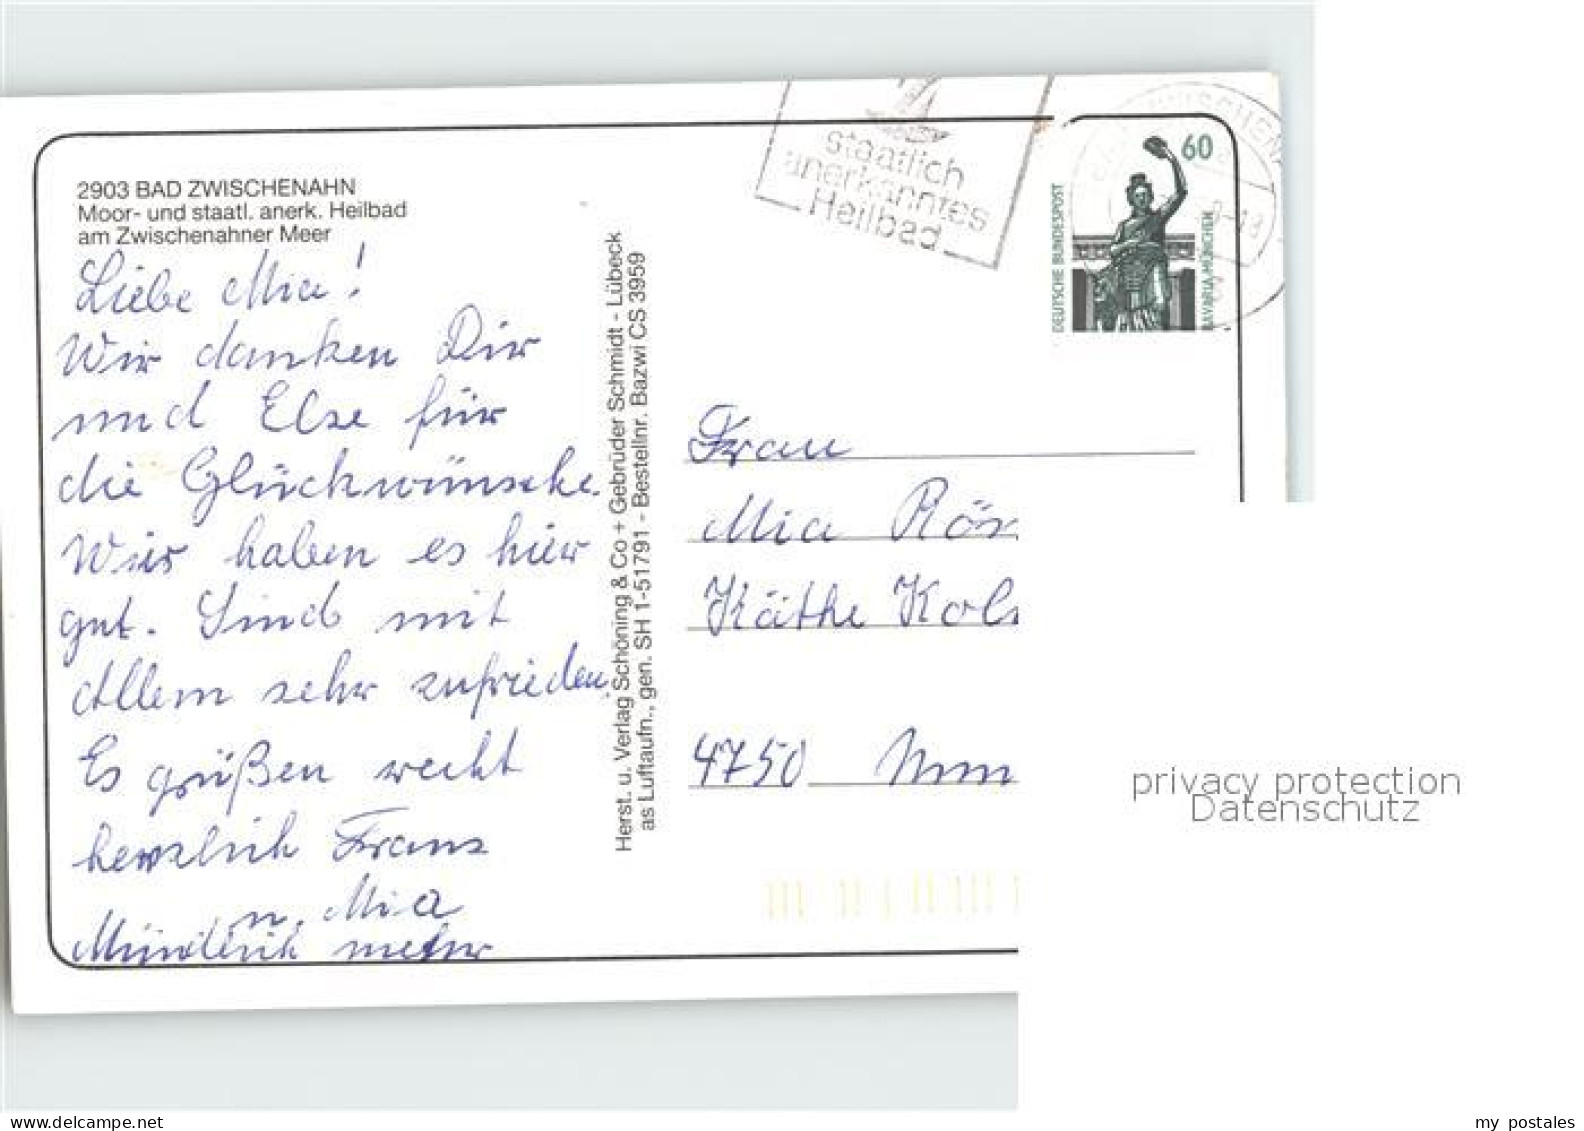 2903 BAD ZWISCHENAHN
Moor- und staatl. anerk. Heilbad
am Zwischenahner Meer
Liebe Mia!
Wir danken Dir
und Else für
die Glückwünsche.
Wir haben es hier
gut. Sind mit
Allem sehr zufrieden.
Es grüßen recht
herzlich Franz
u. Mia
Mündlich mehr
Herst. u. Verlag Schöning & Co + Gebrüder Schmidt - Lübeck
as Luftaufn., gen. SH 1-51791 - Bestellnr. Bazwi CS 3959
staatlich
anerkanntes
Heilbad
60
DEUTSCHE BUNDESPOST
BAVARIA MÜNCHEN
Frau
Mia Rös
Käthe Kol
4750
privacy protection
Datenschutz
my postales